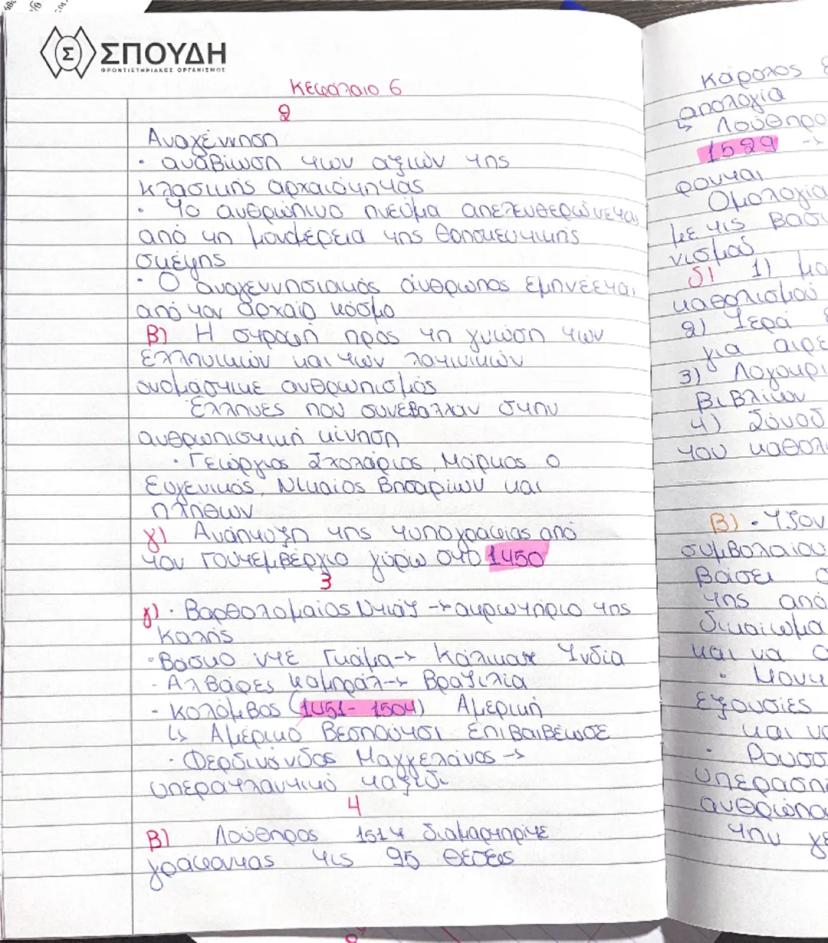 ΣΠΟΥΔΗ
ΦΡΟΝΤΙΣΤΗΡΙΑΚΟΣ ΟΡΓΑΝΙΣΜΟΣ
Κεφάλαιο 6
2
Αναγέννηση
• αναβίωση των αξιών της
κλασικής αρχαιότητας
• το ανθρώπινο πνεύμα απελευθερώνεται
από τη μονομέρεια της θρησκευτικής
σκέψης
• Ο αναγεννησιακός άνθρωπος εμπνέεται
από τον αρχαίο κόσμο
Β) Η στροφή προς τη γνώση των
ελληνικών και των λατινικών
ονομάστικε ανθρωπισμός
Έλληνες που συνέβαλλαν στην
ανθρωπιστική κίνηση
• Γεώργιος Σχολάριος, Μάρκος ο
Ευγενικός, Νικαίος Βησαρίων και
Πλήθων
γ) Ανάπτυξη της τυπογραφίας από
τον Γουτεμβέργιο γύρω στο 1450
3
γ) • Βαρθολομαίος Ντιάζ → ακρωτήριο της
Καλής
• Βάσκο ντε Γκάμα → Κάλικατ Ινδία
- Αλβάρες Καμπράλ → Βραζιλία
- Κολόμβος (1451-1504) Αμερική
↳ Αμερικό Βεσπούτσι Επιβαιβέωσε
• Φερδινάνδος Μαγγελάνος →
υπερατλαντικό ταξίδι
4
Β) Λούθηρος 1517 διαμαρτηρίε
γράφοντας τις 95 θέσεις
Κάρολος
απολογία
↳ Λούθηρο
1529 →
φονται
Ομολογία
με τις βασι
νισμού
δ) 1) μο
καθολισμού
2) Ιερά
για αιρε
3) Λογοκρι
βιβλίων
4) Σύνοδ
του καθολ
Β) • Τζον
συμβολαίου
βάσει
της από
δικαίωμα
και να
• Μοντ
εξουσίες
και
• Ρουσσ
υπερασπ
ανθρώπο
την γε